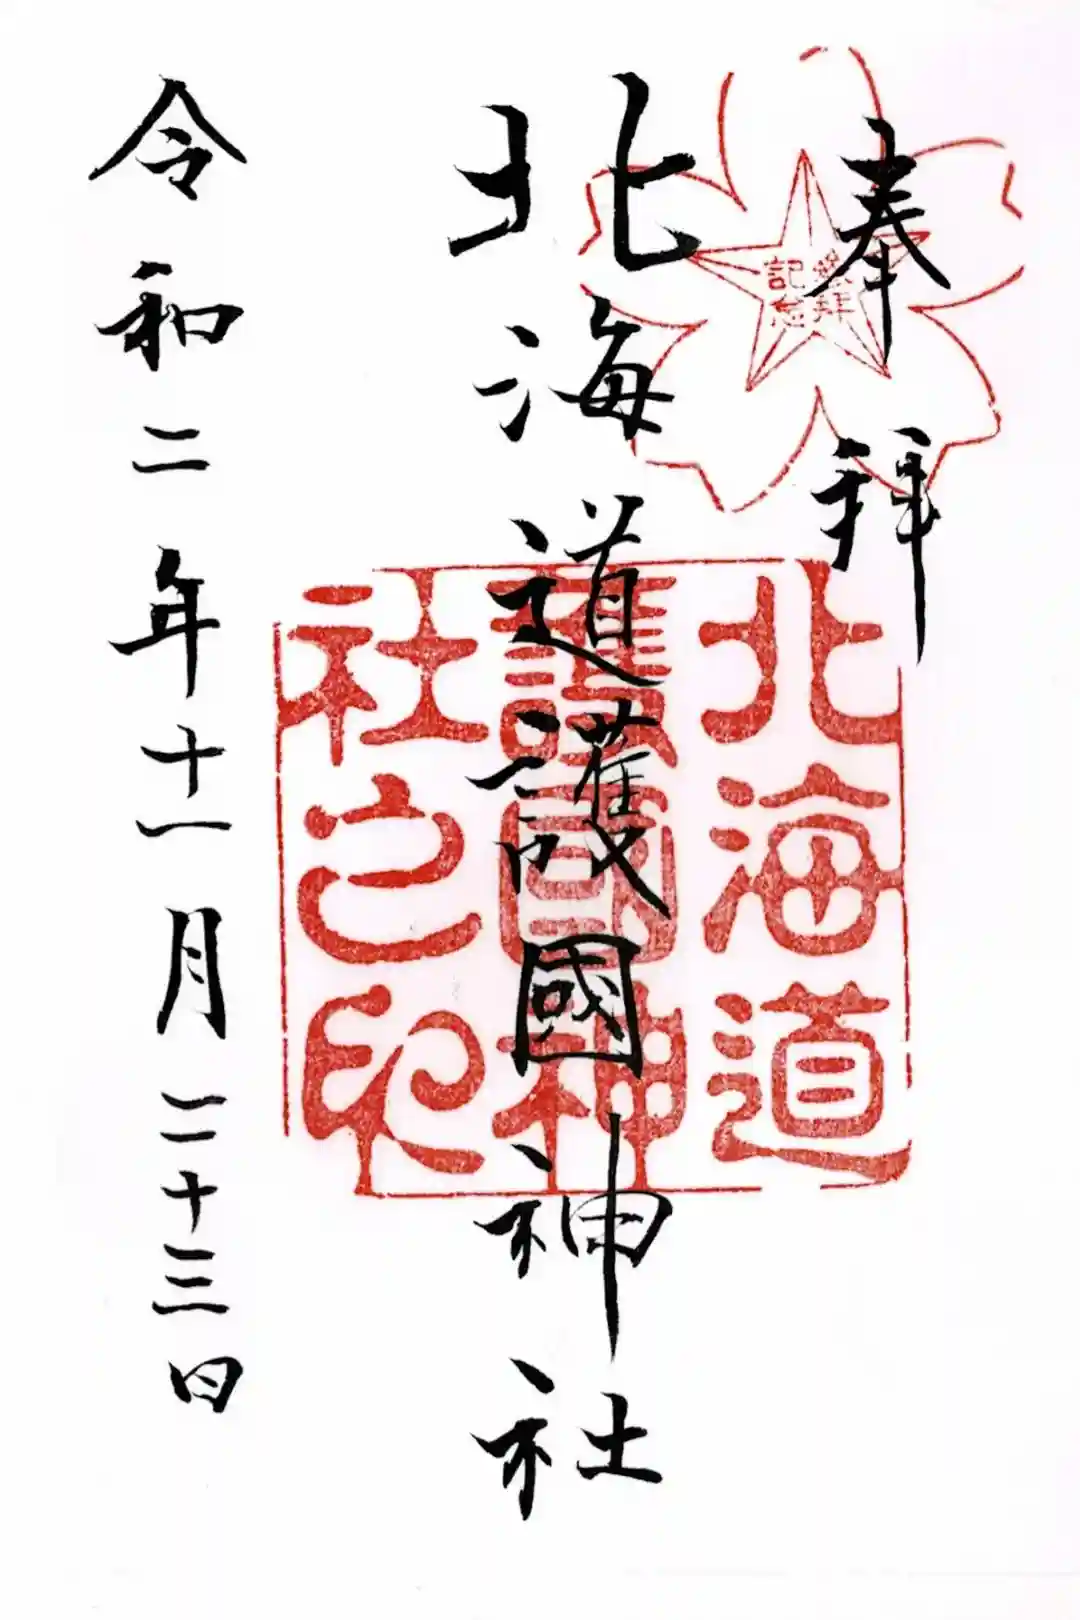 奉拝
参拜
記念
北海道護國神社
北海道
護國神
社之印
令和二年十一月二十三日